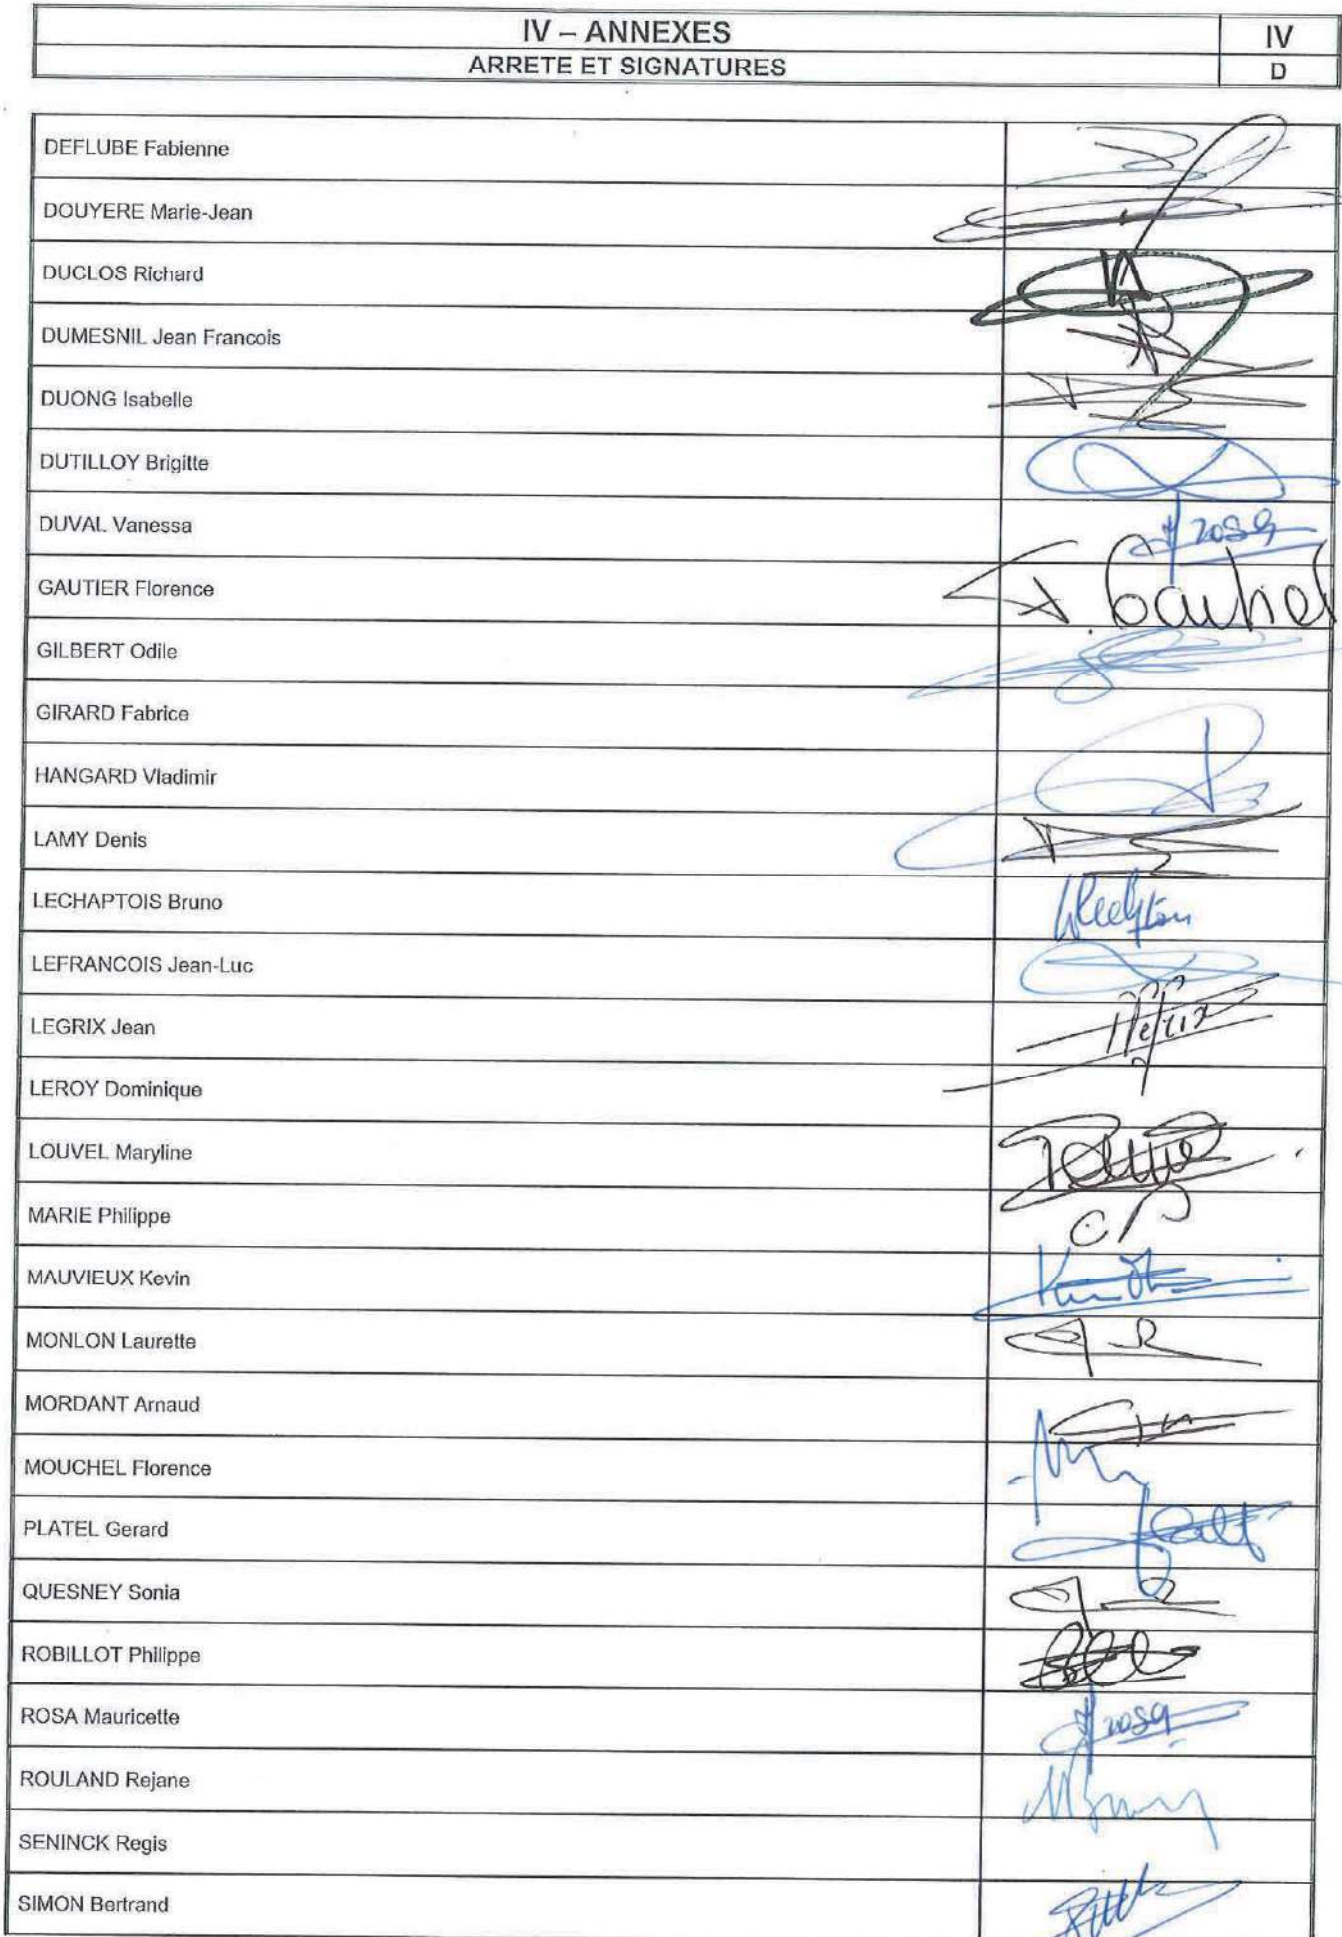 IV – ANNEXES IV
ARRETE ET SIGNATURES D
DEFLUBE Fabienne
DOUYERE Marie-Jean
DUCLOS Richard
DUMESNIL Jean Francois
DUONG Isabelle
DUTILLOY Brigitte
DUVAL Vanessa
GAUTIER Florence
GILBERT Odile
GIRARD Fabrice
HANGARD Vladimir
LAMY Denis
LECHAPTOIS Bruno
LEFRANCOIS Jean-Luc
LEGRIX Jean
LEROY Dominique
LOUVEL Maryline
MARIE Philippe
MAUVIEUX Kevin
MONLON Laurette
MORDANT Arnaud
MOUCHEL Florence
PLATEL Gerard
QUESNEY Sonia
ROBILLOT Philippe
ROSA Mauricette
ROULAND Rejane
SENINCK Regis
SIMON Bertrand